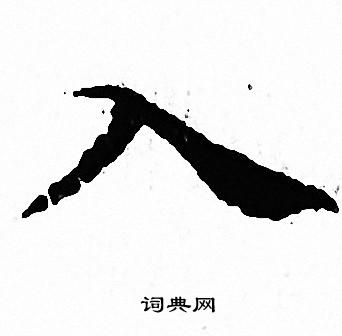 入
词典网